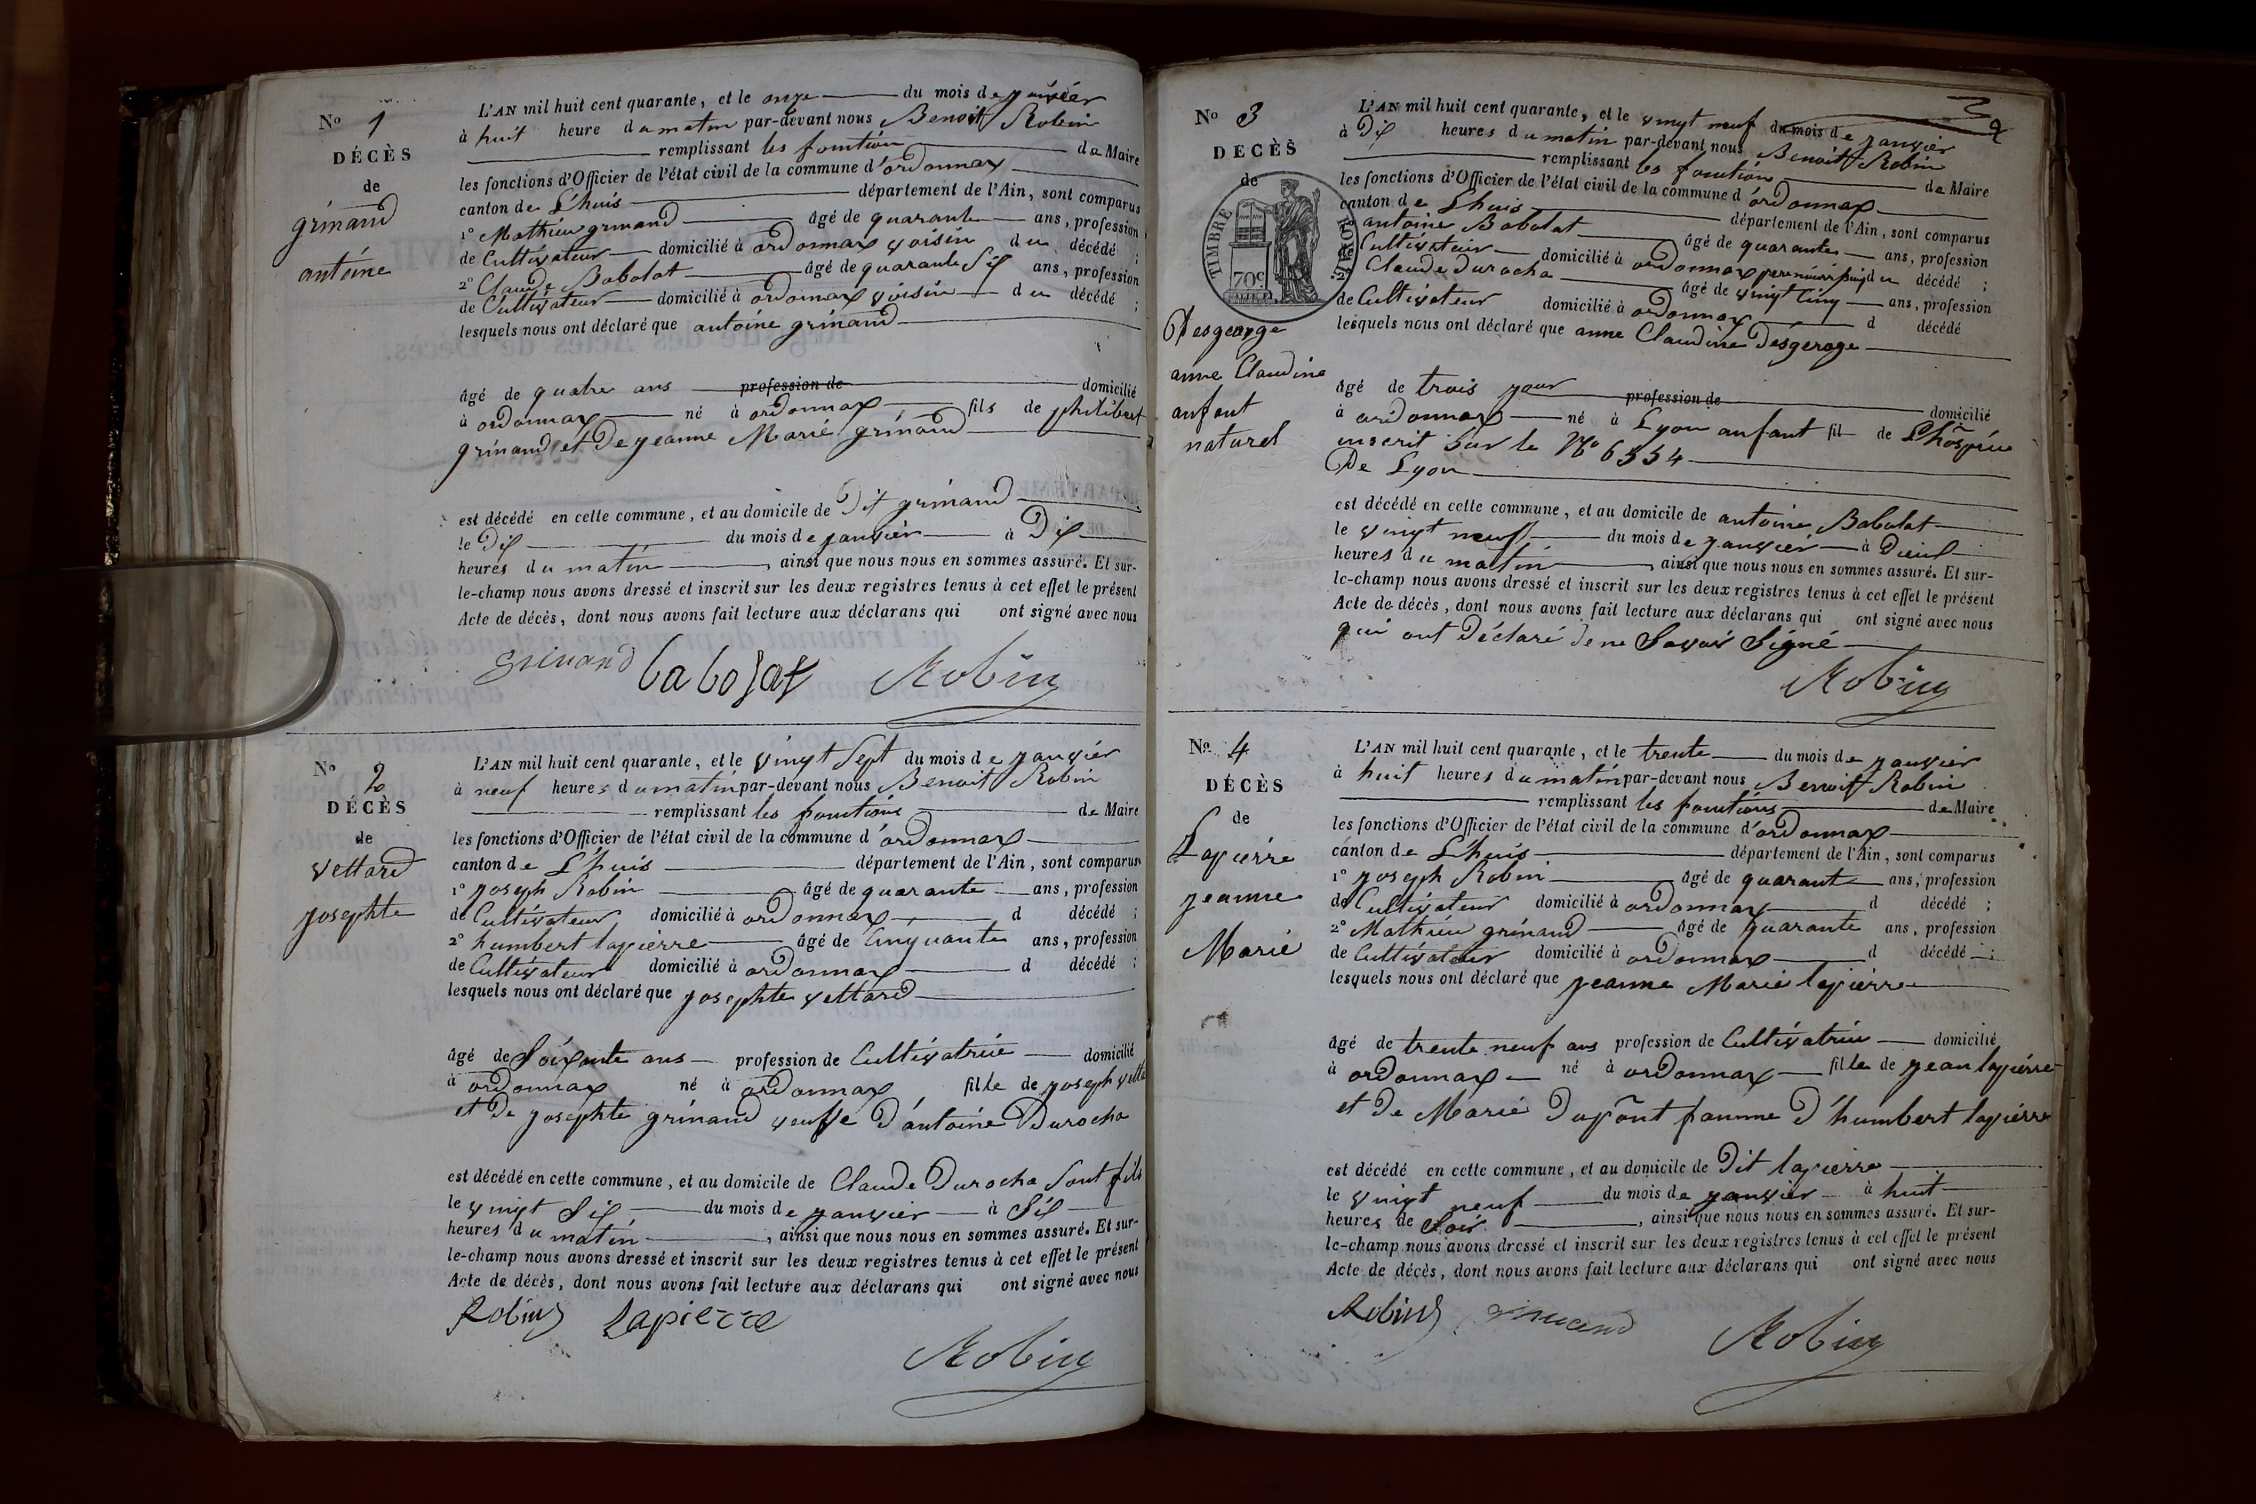 No 1
DÉCÈS
de
grinand
antoine
L'AN mil huit cent quarante, et le onze du mois de janvier
à huit heure du matin par-devant nous Benoit Robin
remplissant les fonction de Maire
les fonctions d'Officier de l'état civil de la commune d'ordonnax
canton de L'huis département de l'Ain, sont comparus
1° Mathieu grinand âgé de quarante ans, profession
de Cultivateur domicilié à ordonnax voisin du décédé ;
2° Claude Babolat âgé de quarante Six ans, profession
de Cultivateur domicilié à ordonnax voisin du décédé ;
lesquels nous ont déclaré que antoine grinand
âgé de quatre ans profession de domicilié
à ordonnax né à ordonnax fils de philibert
grinand et De jeanne Marie grinand
est décédé en cette commune, et au domicile de Dit grinand
le Dix du mois de janvier à Dix
heures du matin, ainsi que nous nous en sommes assuré. Et sur-
le-champ nous avons dressé et inscrit sur les deux registres tenus à cet effet le présent
Acte de décès, dont nous avons fait lecture aux déclarans qui ont signé avec nous
grinand babolat Robin
No 2
DÉCÈS
de
vettard
josephte
L'AN mil huit cent quarante, et le vingt Sept du mois de janvier
à neuf heures du matin par-devant nous Benoit Robin
remplissant les fonctions de Maire
les fonctions d'Officier de l'état civil de la commune d'ordonnax
canton de L'huis département de l'Ain, sont comparus
1° joseph Robin âgé de quarante ans, profession
de Cultivateur domicilié à ordonnax d décédé ;
2° humbert lapierre âgé de Cinquante ans, profession
de Cultivateur domicilié à ordonnax d décédé ;
lesquels nous ont déclaré que josephte vettard
âgé de Soixante ans profession de Cultivatrice domicilié
à ordonnax né à ordonnax fille de joseph vetta
et De josephte grinand veuffe D'antoine Durocha
est décédé en cette commune, et au domicile de Claude Durocha Sont fils
le vingt Six du mois de janvier à Six
heures du matin, ainsi que nous nous en sommes assuré. Et sur-
le-champ nous avons dressé et inscrit sur les deux registres tenus à cet effet le présent
Acte de décès, dont nous avons fait lecture aux déclarans qui ont signé avec nous
Robin Lapierre
Robin
2
No 3
DÉCÈS
de
TIMBRE ROYAL
70c
Desgeorge
anne Claudine
anfant
naturel
L'AN mil huit cent quarante, et le vingt neuf du mois de janvier
à Dix heures du matin par-devant nous Benoit Robin
remplissant les fonction de Maire
les fonctions d'Officier de l'état civil de la commune d'ordonnax
canton de Lhuis département de l'Ain, sont comparus
antoine Babolat âgé de quarante ans, profession
Cultivateur domicilié à ordonnax pere nourrissier du décédé ;
Claude durocha âgé de vingt Cinq ans, profession
de Cultivateur domicilié à ordonnax d décédé
lesquels nous ont déclaré que anne Claudine Desgeroge
âgé de trois jour profession de domicilié
à ordonnax né à Lyon anfant fil de Lhospice
inscrit Sur le No 6554
De Lyon
est décédé en cette commune, et au domicile de antoine Babolat
le vingt neuf du mois de janvier à
heures du matin, ainsi que nous nous en sommes assuré. Et sur-
le-champ nous avons dressé et inscrit sur les deux registres tenus à cet effet le présent
Acte de décès, dont nous avons fait lecture aux déclarans qui ont signé avec nous
qui ont Déclaré De ne Savoir Signé
Robin
No 4
DÉCÈS
de
Lapierre
jeanne
Marie
L'AN mil huit cent quarante, et le trente du mois de janvier
à huit heures du matin par-devant nous Benoit Robin
remplissant les fonctions de Maire
les fonctions d'Officier de l'état civil de la commune d'ordonnax
canton de Lhuis département de l'Ain, sont comparus
1° joseph Robin âgé de quarante ans, profession
de Cultivateur domicilié à ordonnax d décédé ;
2° Mathieu grinand âgé de quarante ans, profession
de Cultivateur domicilié à ordonnax d décédé ;
lesquels nous ont déclaré que jeanne Marie lapierre
âgé de trente neuf ans profession de Cultivatrice domicilié
à ordonnax né à ordonnax fille de jean lapierre
et De Marie Dupont famme D'humbert lapierre
est décédé en cette commune, et au domicile de Dit lapierre
le vingt neuf du mois de janvier à huit
heures de Soir, ainsi que nous nous en sommes assuré. Et sur-
le-champ nous avons dressé et inscrit sur les deux registres tenus à cet effet le présent
Acte de décès, dont nous avons fait lecture aux déclarans qui ont signé avec nous
Robin grinand Robin